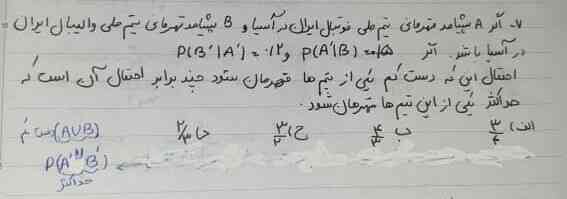 ۷- اگر A پیشامد قهرمانی تیم ملی فوتبال ایران در آسیا و B پیشامد قهرمانی تیم ملی والیبال ایران
در آسیا باشد. اگر P(A'|B) = و P(B'|A') = ۰/۲
احتمال این که دست کم یکی از تیم ها قهرمان شود چند برابر احتمال آن است که
حداکثر یکی از این تیم ها قهرمان شود.
الف) ۳/۴ ب ۴/۳ ج) ۳/۲ د) ۲/۳
(A∪B)
P(A'∪B')
حداکثر